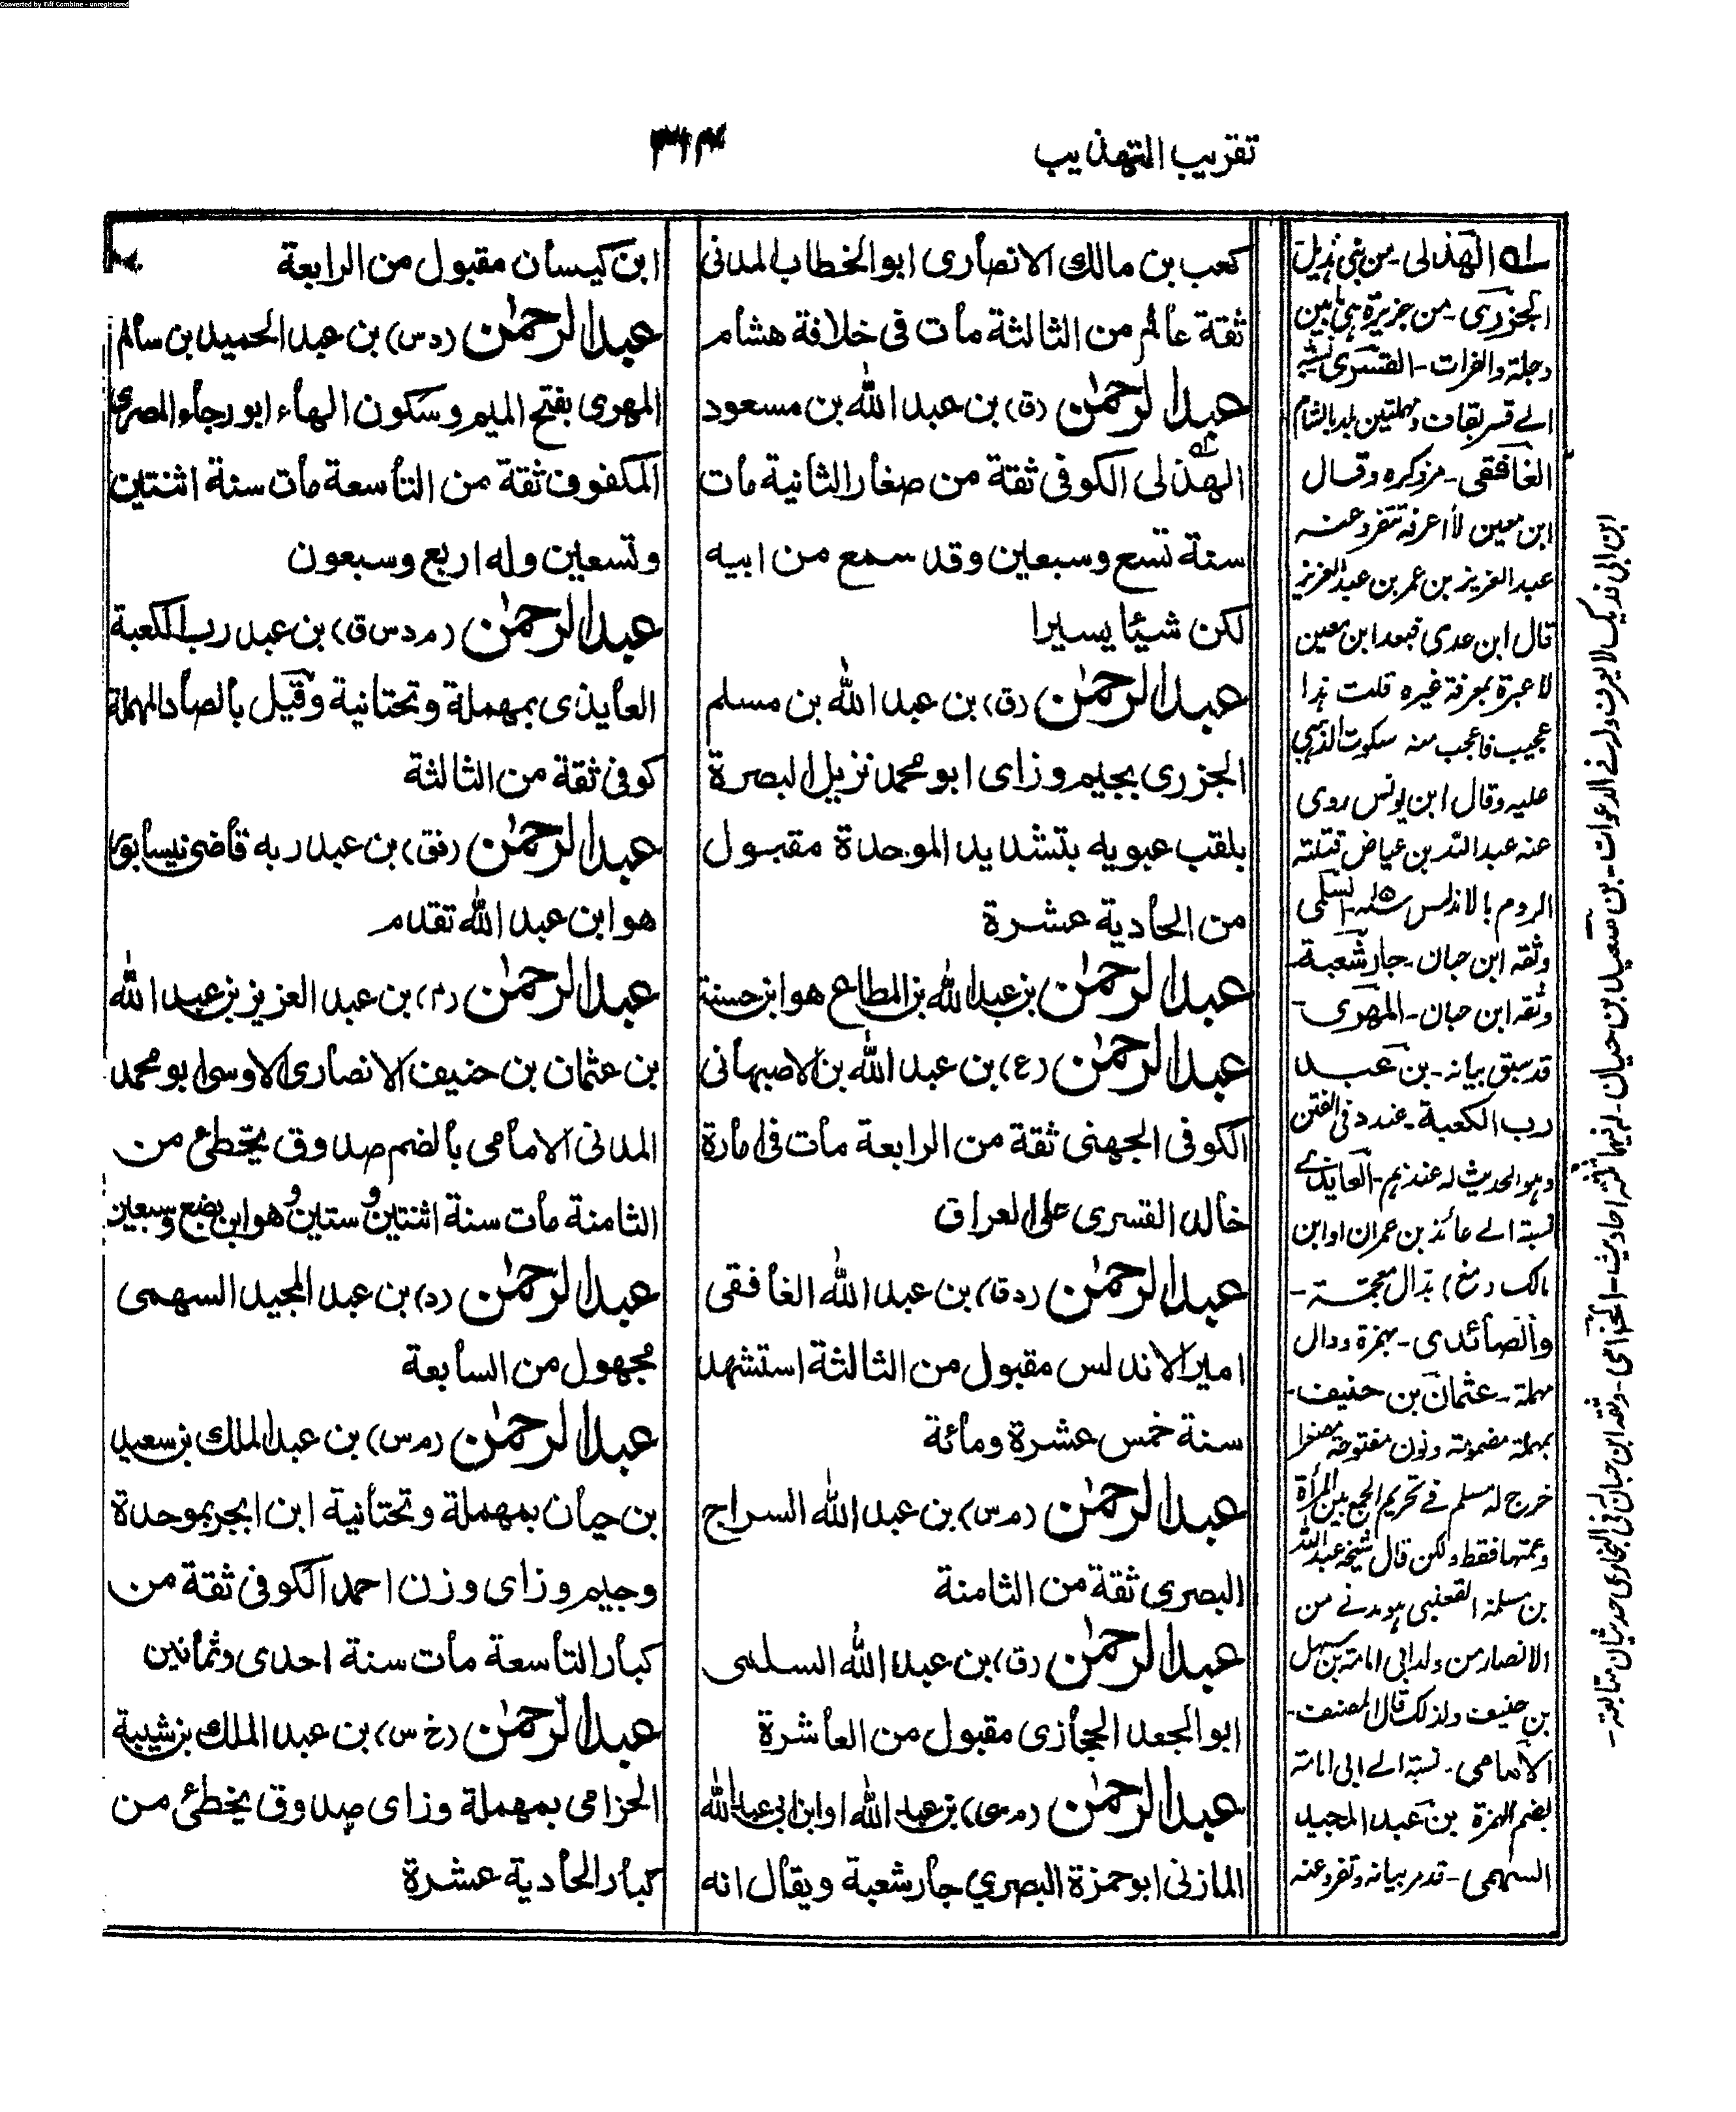 Converted by Tiff Combine - unregistered
تقريب التهذيب
٣١٣
كعب بن مالك الانصارى ابو الخطاب المدنى
ثقة عالم من الثالثة مات فى خلافة هشام
عبد الرحمٰن (ق) بن عبد الله بن مسعود
الهذلى الكوفى ثقة من صغار الثانية مات
سنة تسع وسبعين وقد سمع من ابيه
لكن شيئا يسيرا
عبد الرحمٰن (ق) بن عبد الله بن مسلم
الجزرى بجيم وزاى ابو محمد نزيل البصرة
يلقب عبويه بتشديد الموحدة مقبول
من الحادية عشرة
عبد الرحمٰن بن عبد الله بن المطاع هو ابن حسنة
عبد الرحمٰن (ع) بن عبد الله بن الاصبهانى
الكوفى الجهنى ثقة من الرابعة مات فى امارة
خالد القسرى على العراق
عبد الرحمٰن (د ق) بن عبد الله الغافقى
امير الاندلس مقبول من الثالثة استشهد
سنة خمس عشرة ومائة
عبد الرحمٰن (م س) بن عبد الله السراج
البصرى ثقة من الثامنة
عبد الرحمٰن (ق) بن عبد الله السلمى
ابو الجعد الحجازى مقبول من العاشرة
عبد الرحمٰن (م س) بن عبد الله او ابن ابى عبد الله
المازنى ابو حمزة البصرى جار شعبة ويقال انه
ابن كيسان مقبول من الرابعة
عبد الرحمٰن (د س) بن عبد الحميد بن سالم
المهرى بفتح الميم وسكون الهاء ابو رجاء المصرى
المكفوف ثقة من التاسعة مات سنة اثنتين
وتسعين وله اربع وسبعون
عبد الرحمٰن (م د س ق) بن عبد رب الكعبة
العايذى بمهملة وتحتانية وقيل بالصاد المهملة
كوفى ثقة من الثالثة
عبد الرحمٰن (فق) بن عبد ربه قاضى نيسابور
هو ابن عبد الله تقدم
عبد الرحمٰن (م) بن عبد العزيز بن عبد الله
بن عثمان بن حنيف الانصارى الاوسى ابو محمد
المدنى الامامى بالضم صدوق يخطئ من
الثامنة مات سنة اثنتين وستين وهو ابن بضع وسبعين
عبد الرحمٰن (د) بن عبد المجيد السهمى
مجهول من السابعة
عبد الرحمٰن (م س) بن عبد الملك بن سعيد
بن حيان بمهملة وتحتانية ابن ابجر بموحدة
وجيم وزاى وزن احمد الكوفى ثقة من
كبار التاسعة مات سنة احدى وثمانين
عبد الرحمٰن (خ س) بن عبد الملك بن شيبة
الحزامى بمهملة وزاى صدوق يخطئ من
كبار الحادية عشرة
له الهذلى - من بنى هذيل
الجزرى - من جزيرة هى ما بين
دجلة والفرات - القسرى نسبة
الے قسر بقاف ومهملتين بلد بالشام
الغافقى - مر ذكره وقال
ابن معين لا اعرفه تفرد عنه
عبد العزيز بن عمر بن عبد العزيز
قال ابن عدى فبعد ابن معين
لا عبرة بمعرفة غيره قلت هذا
عجيب فاعجب منه سكوت الذهبى
عليه وقال ابن يونس روى
عنه عبد الله بن عياض قتلته
الروم بالاندلس السلمى
وثقه ابن حبان - جار شعبة -
وثقه ابن حبان - المهرى -
قد سبق بيانه - بن عبد
رب الكعبة - عند د فى الفتن
وهو الحديث له عندهم - العايذے
نسبة الے عائذ بن عمران او ابن
مالك (مغ) بذال معجمة -
والصائدى - بهمزة ودال
مهملة - عثمان بن حنيف -
بمهملة مضمومة ونون مفتوحة مصغرا
خرج له مسلم فے تحريم الجمع بين المرأة
وعمتها فقط ولكن قال شيخه عبد الله
بن مسلمة القعنبى هو مدنے من
الانصار من ولد ابى امامة بن سهل
بن حنيف ولذلك قال المصنف -
الامامى - نسبة الے ابى امامة
بضم الهمزة بن عبد المجيد
السهمى - قد مر بيانه وتفرد عنه
ابن ابى فديك لا يعرف وله فے الدعوات - بن سعيد بن حيان - له فيهما ثلثة احاديث - الحزامى - وثقه ابن حبان له فى البخارى حديثان متابعة -